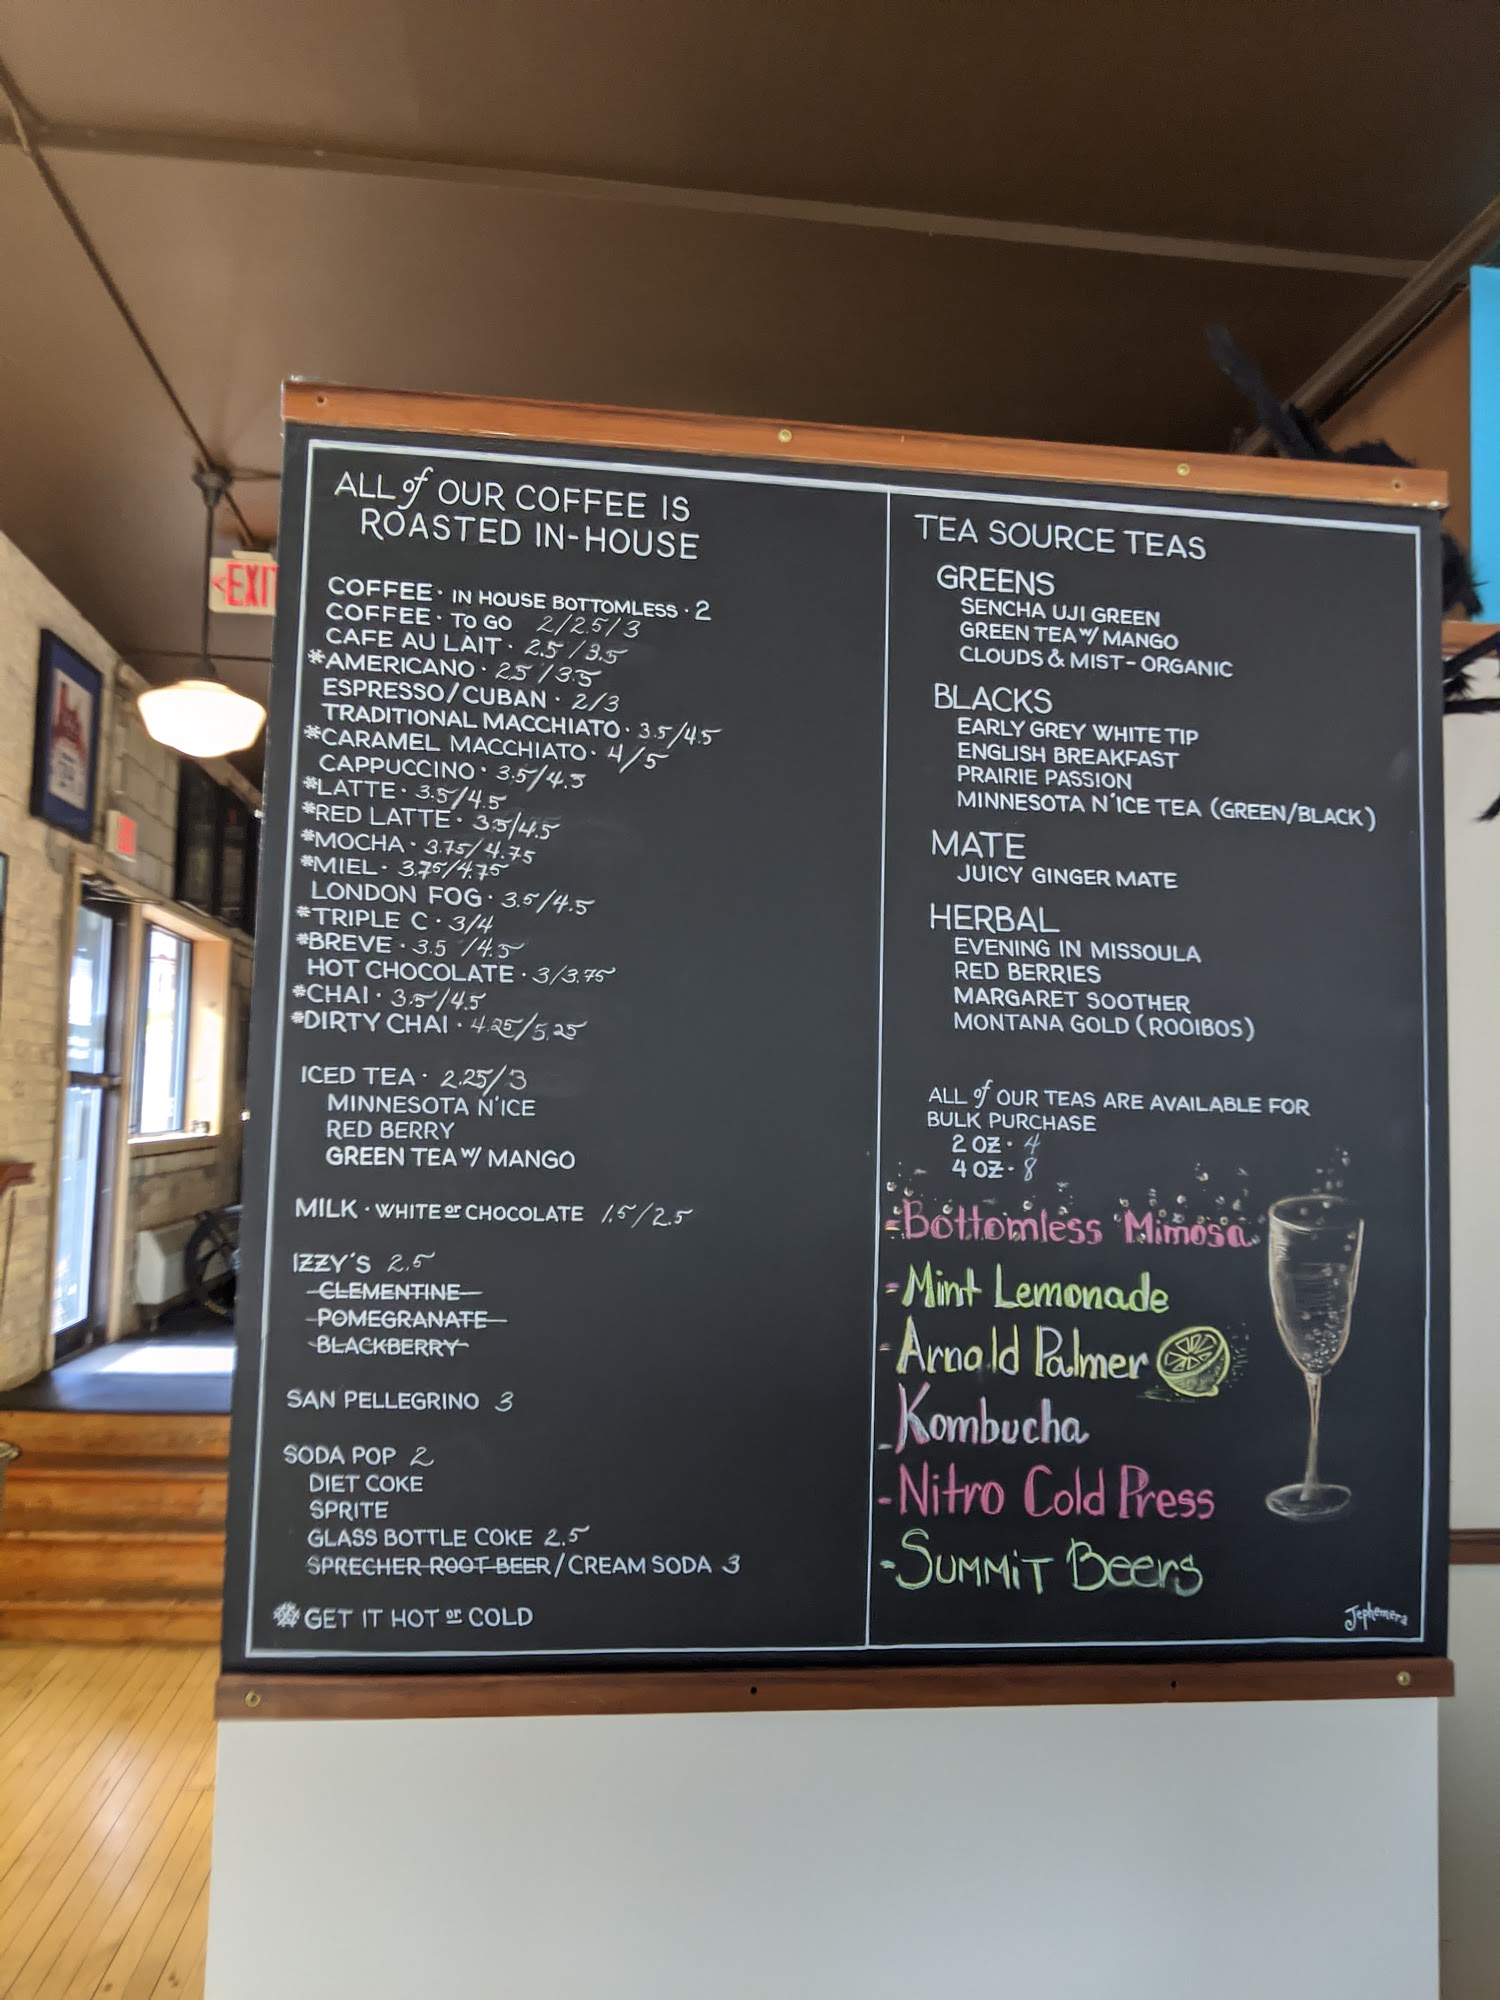 EXIT
ALL of OUR COFFEE IS
ROASTED IN-HOUSE
COFFEE · IN HOUSE BOTTOMLESS · 2
COFFEE · TO GO 2/2.5/3
CAFE AU LAIT · 2.5/3.5
*AMERICANO · 2.5/3.5
ESPRESSO/CUBAN · 2/3
TRADITIONAL MACCHIATO · 3.5/4.5
*CARAMEL MACCHIATO · 4/5
CAPPUCCINO · 3.5/4.5
*LATTE · 3.5/4.5
*RED LATTE · 3.5/4.5
*MOCHA · 3.75/4.75
*MIEL · 3.75/4.75
LONDON FOG · 3.5/4.5
*TRIPLE C · 3/4
*BREVE · 3.5/4.5
HOT CHOCOLATE · 3/3.75
*CHAI · 3.5/4.5
*DIRTY CHAI · 4.25/5.25
ICED TEA · 2.25/3
MINNESOTA N'ICE
RED BERRY
GREEN TEA W/ MANGO
MILK · WHITE or CHOCOLATE 1.5/2.5
IZZY'S 2.5
CLEMENTINE
POMEGRANATE
BLACKBERRY
SAN PELLEGRINO 3
SODA POP 2
DIET COKE
SPRITE
GLASS BOTTLE COKE 2.5
SPRECHER ROOT BEER/CREAM SODA 3
*GET IT HOT or COLD
TEA SOURCE TEAS
GREENS
SENCHA UJI GREEN
GREEN TEA W/ MANGO
CLOUDS & MIST - ORGANIC
BLACKS
EARLY GREY WHITE TIP
ENGLISH BREAKFAST
PRAIRIE PASSION
MINNESOTA N'ICE TEA (GREEN/BLACK)
MATE
JUICY GINGER MATE
HERBAL
EVENING IN MISSOULA
RED BERRIES
MARGARET SOOTHER
MONTANA GOLD (ROOIBOS)
ALL of OUR TEAS ARE AVAILABLE FOR
BULK PURCHASE
2 OZ · 4
4 OZ · 8
-Bottomless Mimosa
-Mint Lemonade
-Arnold Palmer
-Kombucha
-Nitro Cold Press
-SUMMIT Beers
Jephemera